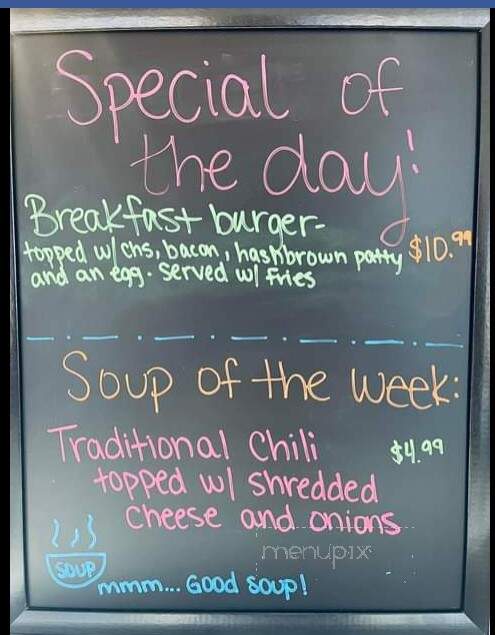 Special of
the day!
Breakfast burger-
topped w/ chs, bacon, hashbrown patty $10.99
and an egg. Served w/ fries
Soup of the week:
Traditional Chili $4.99
topped w/ shredded
cheese and onions
menupix
SOUP
mmm... Good Soup!